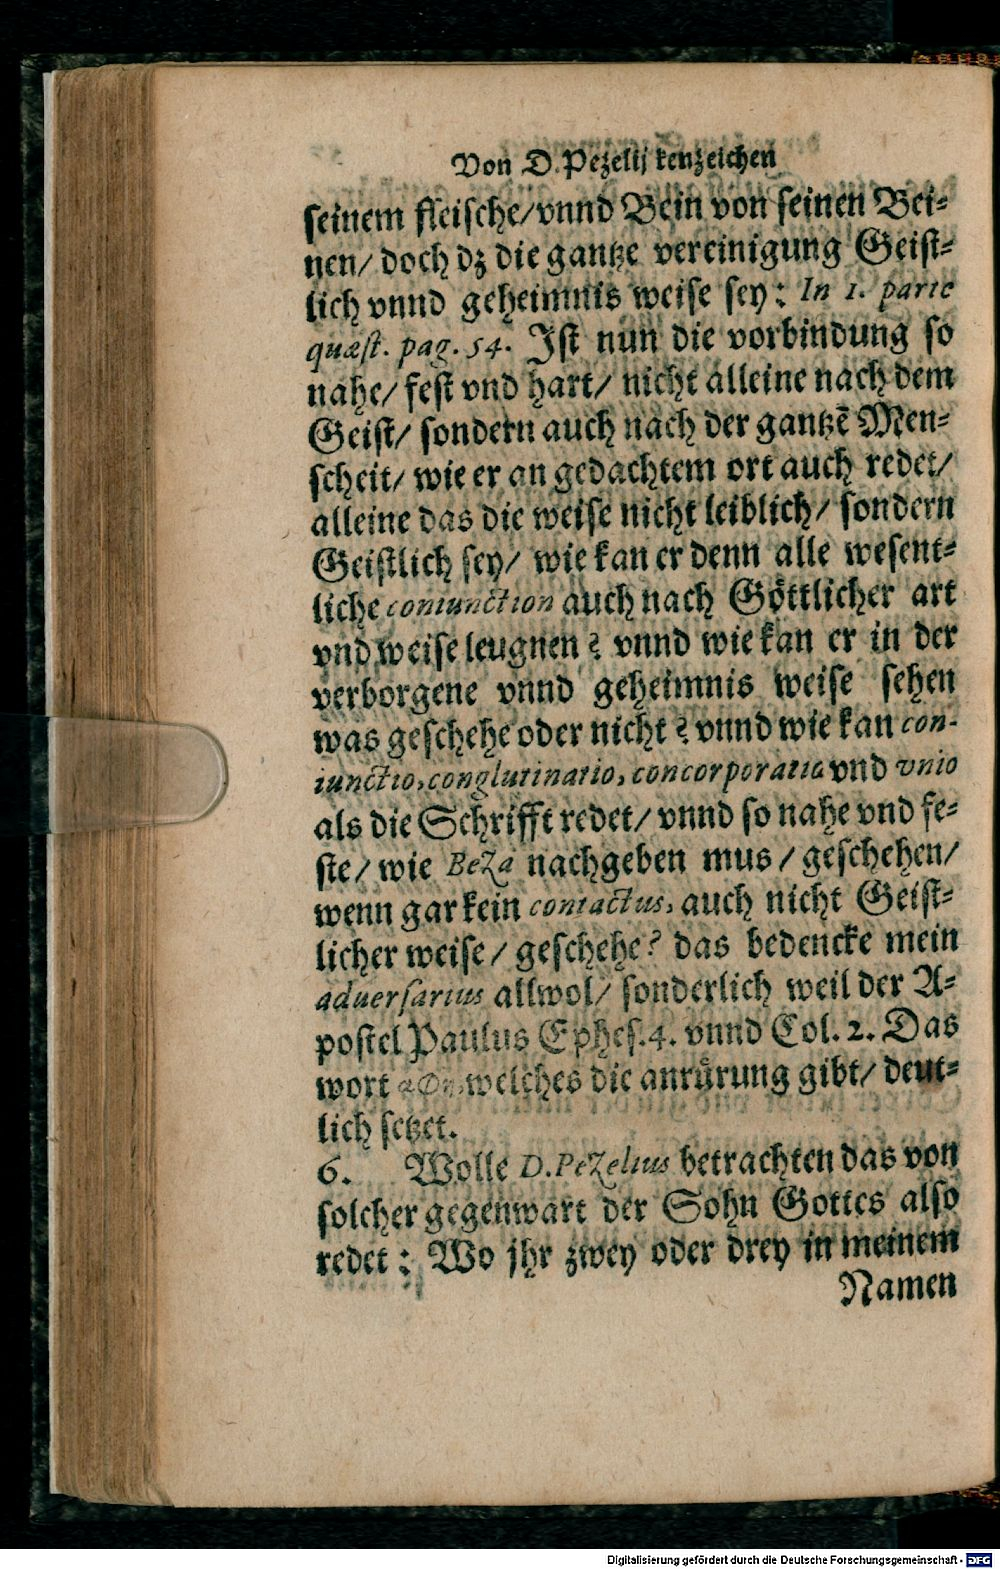 Von D. Pezelij kenzeichen
seinem fleische/vnnd Bein von seinen Bei⸗
nen/ doch dz die gantze vereinigung Geist⸗
lich vnnd geheimnis weise sey: In 1. parte
quæst. pag. 54. Ist nun die vorbindung so
nahe/ fest vnd hart/ nicht alleine nach dem
Geist/ sondern auch nach der gantzē Men⸗
scheit/ wie er an gedachtem ort auch redet/
alleine das die weise nicht leiblich/ sondern
Geistlich sey/ wie kan er denn alle wesent⸗
liche coniunction auch nach Göttlicher art
vnd weise leugnen? vnnd wie kan er in der
verborgene vnnd geheimnis weise sehen
was geschehe oder nicht? vnnd wie kan con-
iunctio, conglutinatio, concorporatia vnd vnio
als die Schrifft redet/ vnnd so nahe vnd fe⸗
ste/ wie BeZa nachgeben mus/ geschehen/
wenn gar kein contactus, auch nicht Geist⸗
licher weise/ geschehe? das bedencke mein
aduersarius allwol/ sonderlich weil der A⸗
postel Paulus Ephes. 4. vnnd Col. 2. Das
wort welches die anrürung gibt/ deut⸗
lich setzet.
6. Wolle D. PeZelius betrachten das von
solcher gegenwart der Sohn Gottes also
redet: Wo jhr zwey oder drey in meinem
Namen
Digitalisierung gefördert durch die Deutsche Forschungsgemeinschaft - DFG